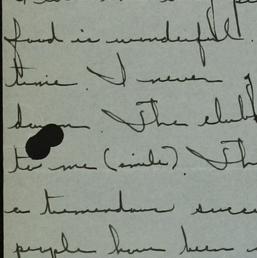 food is wonderful.
time. I never
down. The club
to me (smile). Th
a tremendous succe
people have been